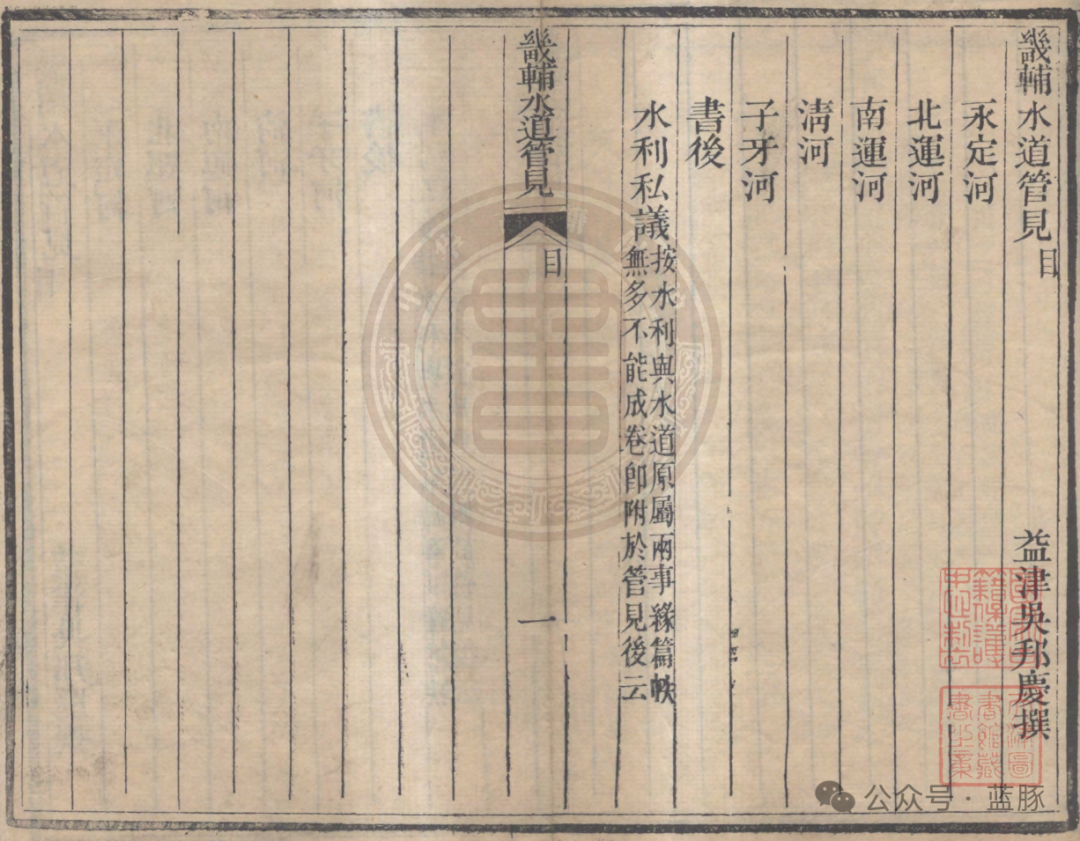 畿輔水道管見目
益津吳邦慶撰
永定河
北運河
南運河
淸河
子牙河
書後
水利私議
按水利與水道原屬兩事緣篇帙
無多不能成卷卽附於管見後云
畿輔水道管見
目
一
公众号·蓝豚